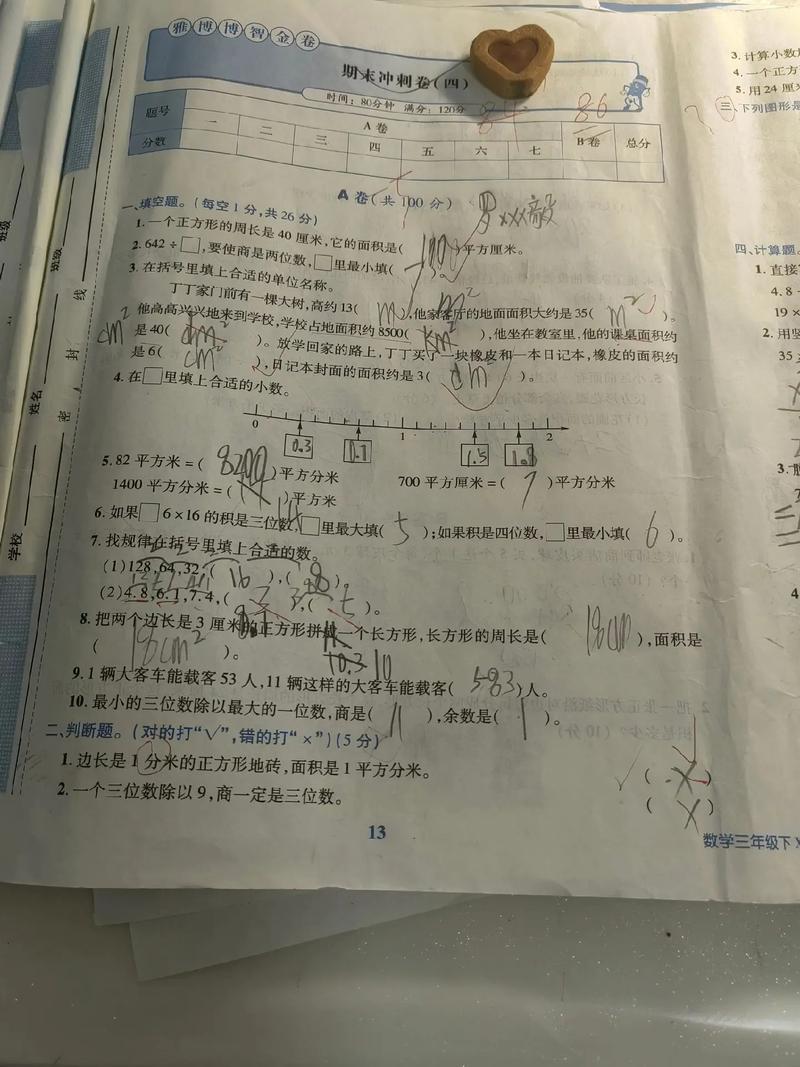 雅博博智金卷
期末冲刺卷(四)
时间:80分钟 满分:120分
题号 A卷 B卷 总分
一 二 三 四 五 六 七
分数
86
A 卷(共 100 分)
一、填空题。(每空 1 分,共 26 分)
1. 一个正方形的周长是 40 厘米,它的面积是( 100 )平方厘米。
2. 642÷□,要使商是两位数,□里最小填( )
3. 在括号里填上合适的单位名称。
丁丁家门前有一棵大树,高约 13( m ),他家客厅的地面面积大约是 35( m² )。
他高高兴兴地来到学校,学校占地面积约 8500( km² ),他坐在教室里,他的课桌面积约
是 40( dm² )。放学回家的路上,丁丁买了一块橡皮和一本日记本,橡皮的面积约
cm²
是 6( cm² ),日记本封面的面积约是 3( dm )。
4. 在□里填上合适的小数。
0 1 2
0.3 0.7 1.5 1.8
5. 82 平方米=( 8200 )平方分米
700 平方厘米=( 7 )平方分米
1400 平方分米=( 14 )平方米
6. 如果□6×16 的积是三位数,□里最大填( 5 );如果积是四位数,□里最小填( 6 )。
7. 找规律在括号里填上合适的数。
(1)128,64,32,( 16 ),( 8 )。
(2)4.8,6.1,7.4,( ),( )。
8. 把两个边长是 3 厘米的正方形拼成一个长方形,长方形的周长是( 18cm ),面积是
( 18cm² )。
9. 1 辆大客车能载客 53 人,11 辆这样的大客车能载客( 583 )人。
10. 最小的三位数除以最大的一位数,商是( 11 ),余数是( 1 )。
二、判断题。(对的打“√”,错的打“×”)(5 分)
1. 边长是 1 分米的正方形地砖,面积是 1 平方分米。 ( × )
2. 一个三位数除以 9,商一定是三位数。 ( × )
13
数学三年级下
学校
姓名
班级
密
封
线
班级
3. 计算小数
4. 一个正方
5. 用 24 厘
三、下列图形是
四、计算题。
1. 直接
4.8
19×
2. 用竖
35
3.
4